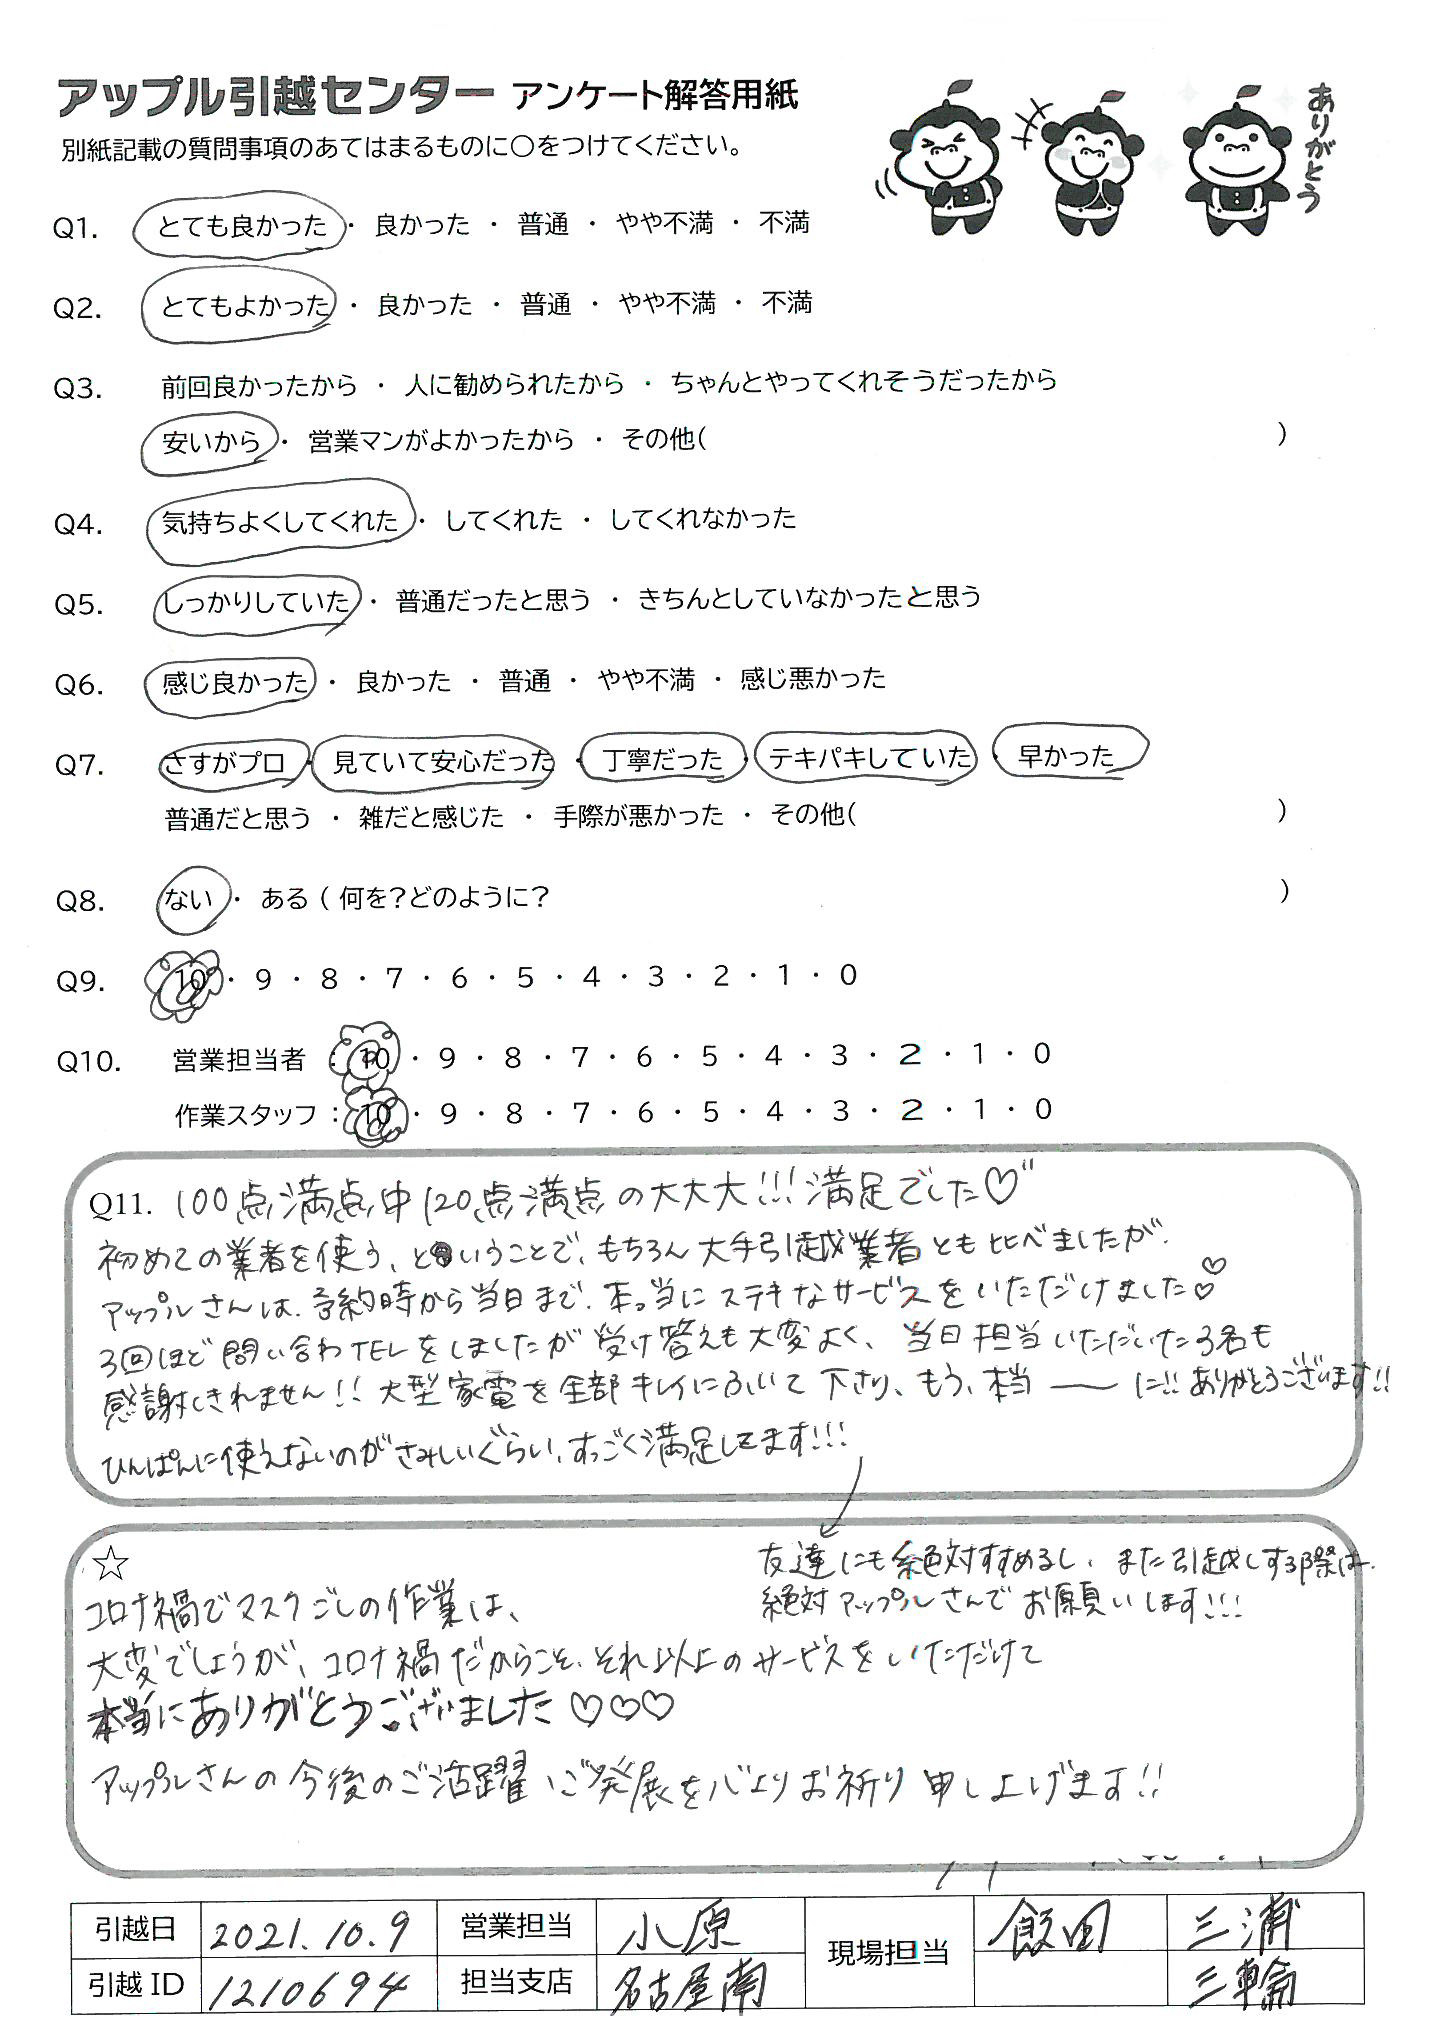 アップル引越センター アンケート解答用紙
ありがとう
別紙記載の質問事項のあてはまるものに○をつけてください。
Q1. とても良かった ・ 良かった ・ 普通 ・ やや不満 ・ 不満
Q2. とてもよかった ・ 良かった ・ 普通 ・ やや不満 ・ 不満
Q3. 前回良かったから ・ 人に勧められたから ・ ちゃんとやってくれそうだったから
安いから ・ 営業マンがよかったから ・ その他( )
Q4. 気持ちよくしてくれた ・ してくれた ・ してくれなかった
Q5. しっかりしていた ・ 普通だったと思う ・ きちんとしていなかったと思う
Q6. 感じ良かった ・ 良かった ・ 普通 ・ やや不満 ・ 感じ悪かった
Q7. さすがプロ ・ 見ていて安心だった ・ 丁寧だった ・ テキパキしていた ・ 早かった
普通だと思う ・ 雑だと感じた ・ 手際が悪かった ・ その他( )
Q8. ない ・ ある ( 何を？どのように？ )
Q9. 10 ・ 9 ・ 8 ・ 7 ・ 6 ・ 5 ・ 4 ・ 3 ・ 2 ・ 1 ・ 0
Q10. 営業担当者 : 10 ・ 9 ・ 8 ・ 7 ・ 6 ・ 5 ・ 4 ・ 3 ・ 2 ・ 1 ・ 0
作業スタッフ : 10 ・ 9 ・ 8 ・ 7 ・ 6 ・ 5 ・ 4 ・ 3 ・ 2 ・ 1 ・ 0
Q11. 100点満点中120点満点の大大大!!!満足でした♡"
初めての業者を使う、ということで、もちろん大手引越業者とも比べましたが、
アップルさんは、予約時から当日まで、本当にステキなサービスをいただけました♡
3回ほど問い合わTELをしましたが受け答えも大変よく、当日担当いただいた3名も
感謝しきれません!! 大型家電を全部キレイにふいて下さり、もう、本当――に!!ありがとうございます!!
ひんぱんに使えないのがさみしいぐらい、すっごく満足してます!!!
友達にも絶対すすめるし、また引越しする際は、
絶対アップルさんでお願いします!!!
☆
コロナ禍でマスクごしの作業は、
大変でしょうが、コロナ禍だからこそ、それ以上のサービスをいただけて
本当にありがとうございました♡♡♡
アップルさんの今後のご活躍、ご発展を心よりお祈り申し上げます!!
引越日 2021.10.9 営業担当 小原 現場担当 飯田 三浦
引越ID 1210694 担当支店 名古屋南 三輪